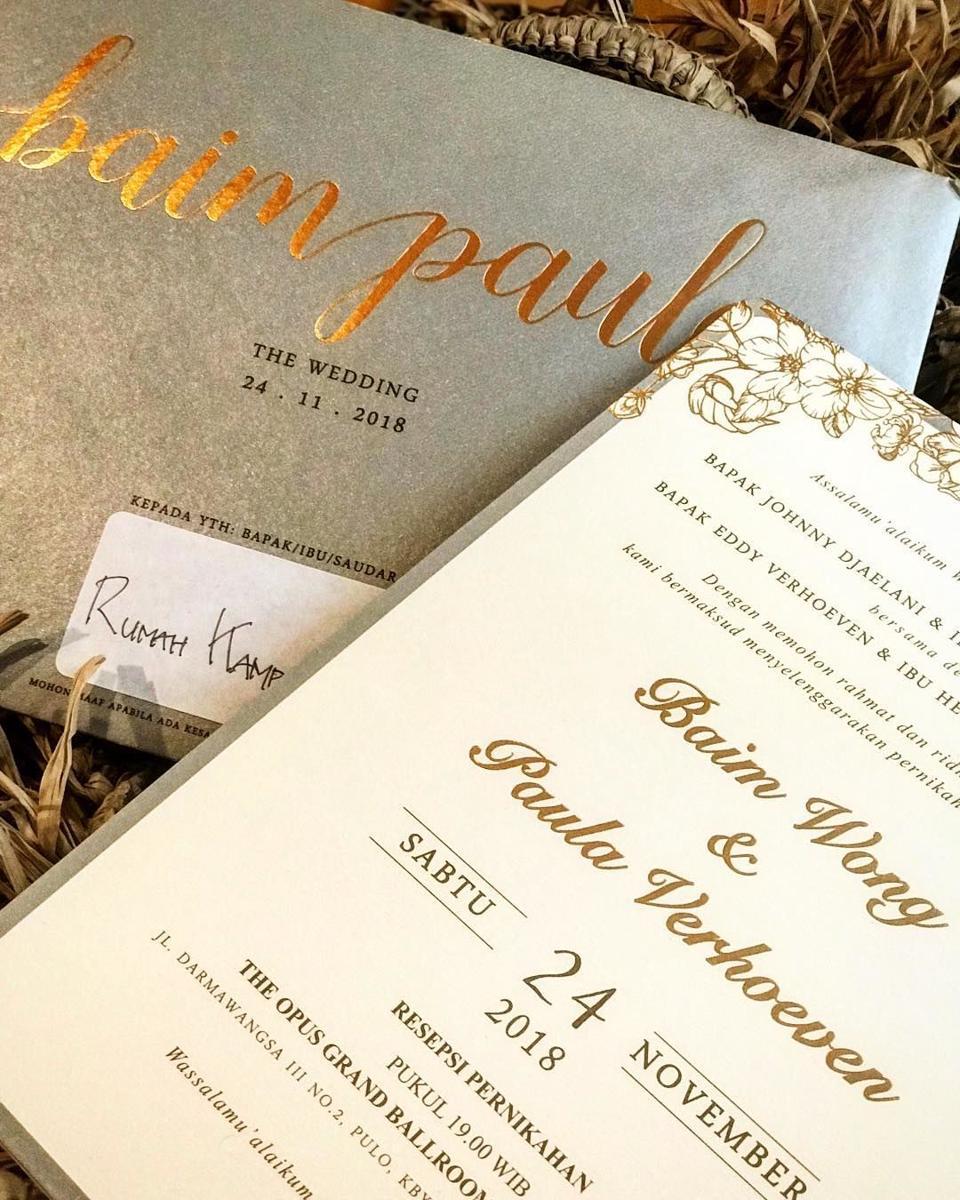 baim paul
THE WEDDING
24 . 11 . 2018
KEPADA YTH: BAPAK/IBU/SAUDAR
RUMAH HAMP
MOHON MAAF APABILA ADA KESA
Assalamu'alaikum W
BAPAK JOHNNY DJAELANI & I
bersama de
BAPAK EDDY VERHOEVEN & IBU HE
Dengan memohon rahmat dan ridh
kami bermaksud menyelenggarakan pernikah
Baim Wong
&
Paula Verhoeven
SABTU
24
2018
NOVEMBER
RESEPSI PERNIKAHAN
PUKUL 19.00 WIB
THE OPUS GRAND BALLROOM
JL. DARMAWANGSA III NO.2, PULO, KBY
Wassalamu'alaikum